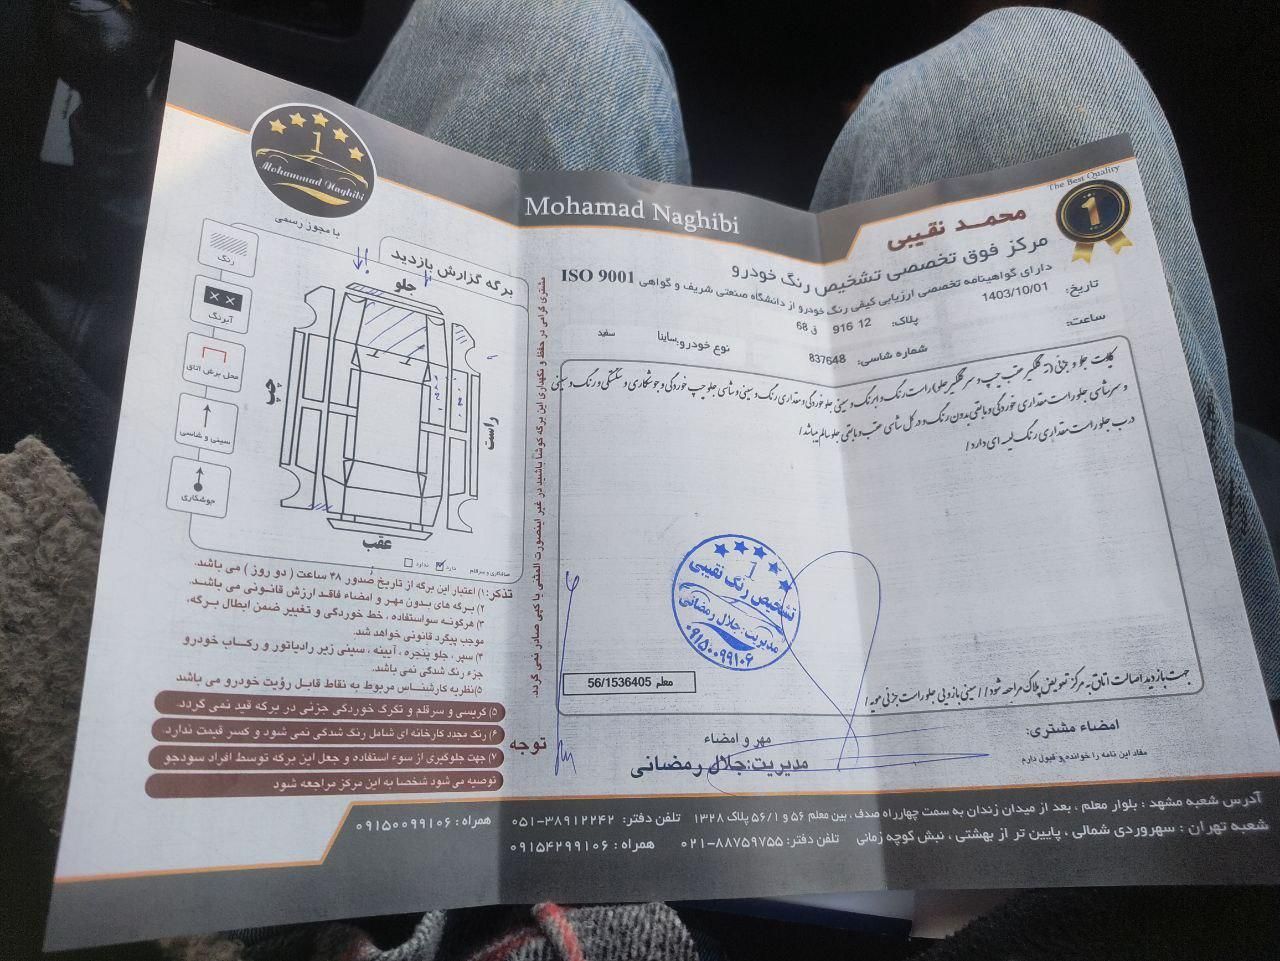 Mohammad Naghibi
1
با مجوز رسمی
برگه گزارش بازدید
رنگ
آبرنگ
محل برش اتاق
سینی و شاسی
جوشکاری
جلو
چپ
راست
عقب
صافکاری و سرقلم دارد ندارد
تذکر: ۱) اعتبار این برگه از تاریخ صدور ۴۸ ساعت ( دو روز ) می باشد.
۲) برگه های بدون مهر و امضاء فاقد ارزش قانونی می باشد.
۳) هرگونه سواستفاده ، خط خوردگی و تغییر ضمن ابطال برگه،
موجب پیگرد قانونی خواهد شد.
۴) سپر ، جلو پنجره ، آیینه ، سینی زیر رادیاتور و رکاب خودرو
جزء رنگ شدگی نمی باشد.
۵) نظریه کارشناس مربوط به نقاط قابل رؤیت خودرو می باشد
توجه
۵) گریسی و سرقلم و تکرک خوردگی جزئی در برگه قید نمی گردد.
۶) رنگ مجدد کارخانه ای شامل رنگ شدگی نمی شود و کسر قیمت ندارد.
۷) جهت جلوگیری از سوء استفاده و جعل این برگه توسط افراد سودجو
توصیه می شود شخصا به این مرکز مراجعه شود
مشتری گرامی در حفظ و نگهداری این برگه کوشا باشید در غیر اینصورت المثنی یا کپی صادر نمی گردد.
Mohamad Naghibi
The Best Quality
1
محمـد نقیبی
مرکز فوق تخصصی تشخیص رنگ خودرو
دارای گواهینامه تخصصی ارزیابی کیفی رنگ خودرو از دانشگاه صنعتی شریف و گواهی ISO 9001
تاریخ: 1403/10/01
پلاک: 12 916 ق 68
ساعت:
نوع خودرو: ساینا سفید
شماره شاسی: 837648
درب جلو راست مقداری رنگ لیسه ای دارد/
1
تشخیص رنگ نقیبی
مدیریت: جلال رمضانی
۰۹۱۵۰۰۹۹۱۰۶
معلم 56/1536405
جهت بازدید اصالت اتاق به مرکز تعویض پلاک مراجعه شود/
امضاء مشتری:
مفاد این نامه را خوانده و قبول دارم
مهر و امضاء
مدیریت: جلال رمضانی
آدرس شعبه مشهد : بلوار معلم ، بعد از میدان زندان به سمت چهارراه صدف، بین معلم ۵۶ و ۵۶/۱ پلاک ۱۳۲۸ تلفن دفتر: ۳۸۹۱۲۲۴۲-۰۵۱ همراه : ۰۹۱۵۰۰۹۹۱۰۶
شعبه تهران : سهروردی شمالی ، پایین تر از بهشتی ، نبش کوچه زمانی تلفن دفتر: ۸۸۷۵۹۷۵۵-۰۲۱ همراه : ۰۹۱۵۴۲۹۹۱۰۶